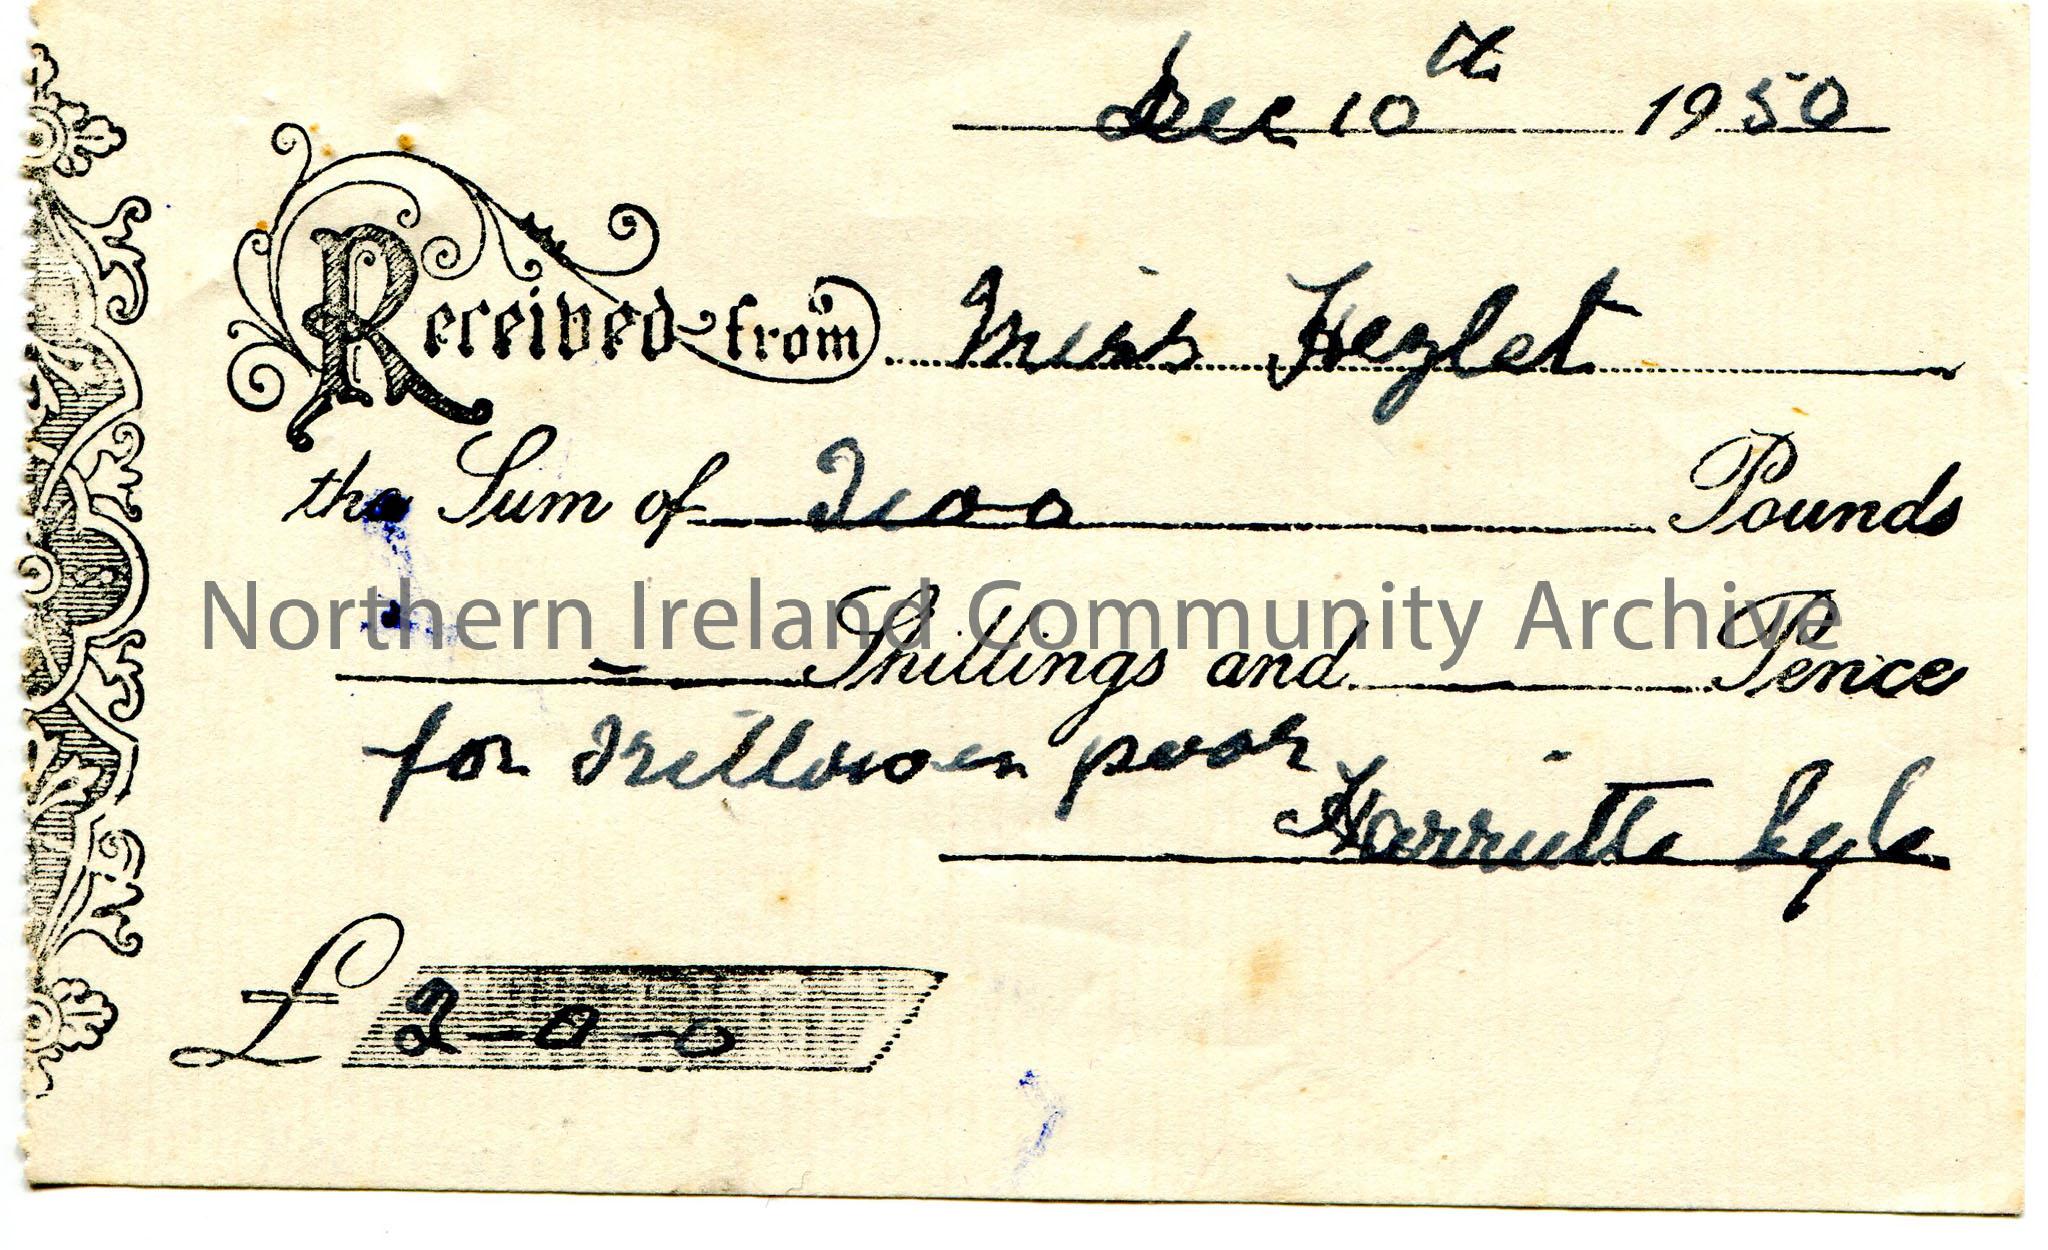 Dec 10th 1950
Received from Miss Hezlet
the Sum of Two Pounds
Northern Ireland Community Archive
— Shillings and — Pence
for Killowen poor
Harriette Lyle
£ 2-0-0